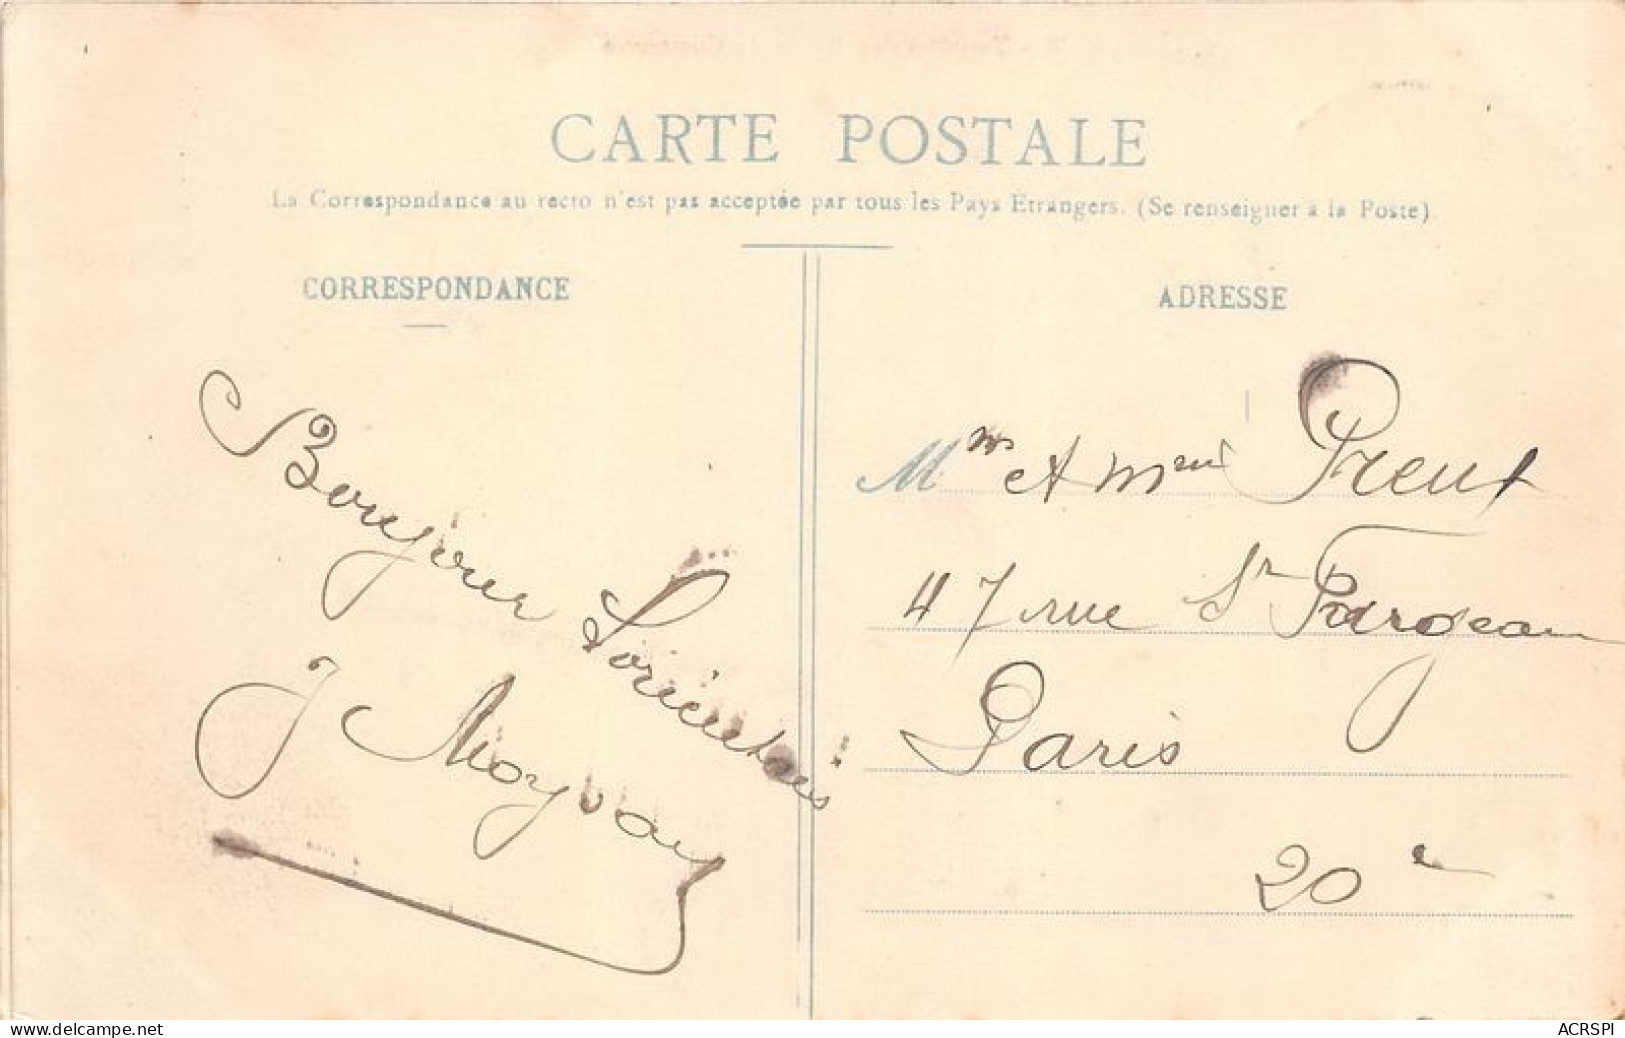 CARTE POSTALE
La Correspondance au recto n'est pas acceptée par tous les Pays Etrangers. (Se renseigner à la Poste).
CORRESPONDANCE
Bonjour Lorientais
J
ADRESSE
M et
47 rue St Fargeau
Paris
20e
www.delcampe.net
ACRSPI